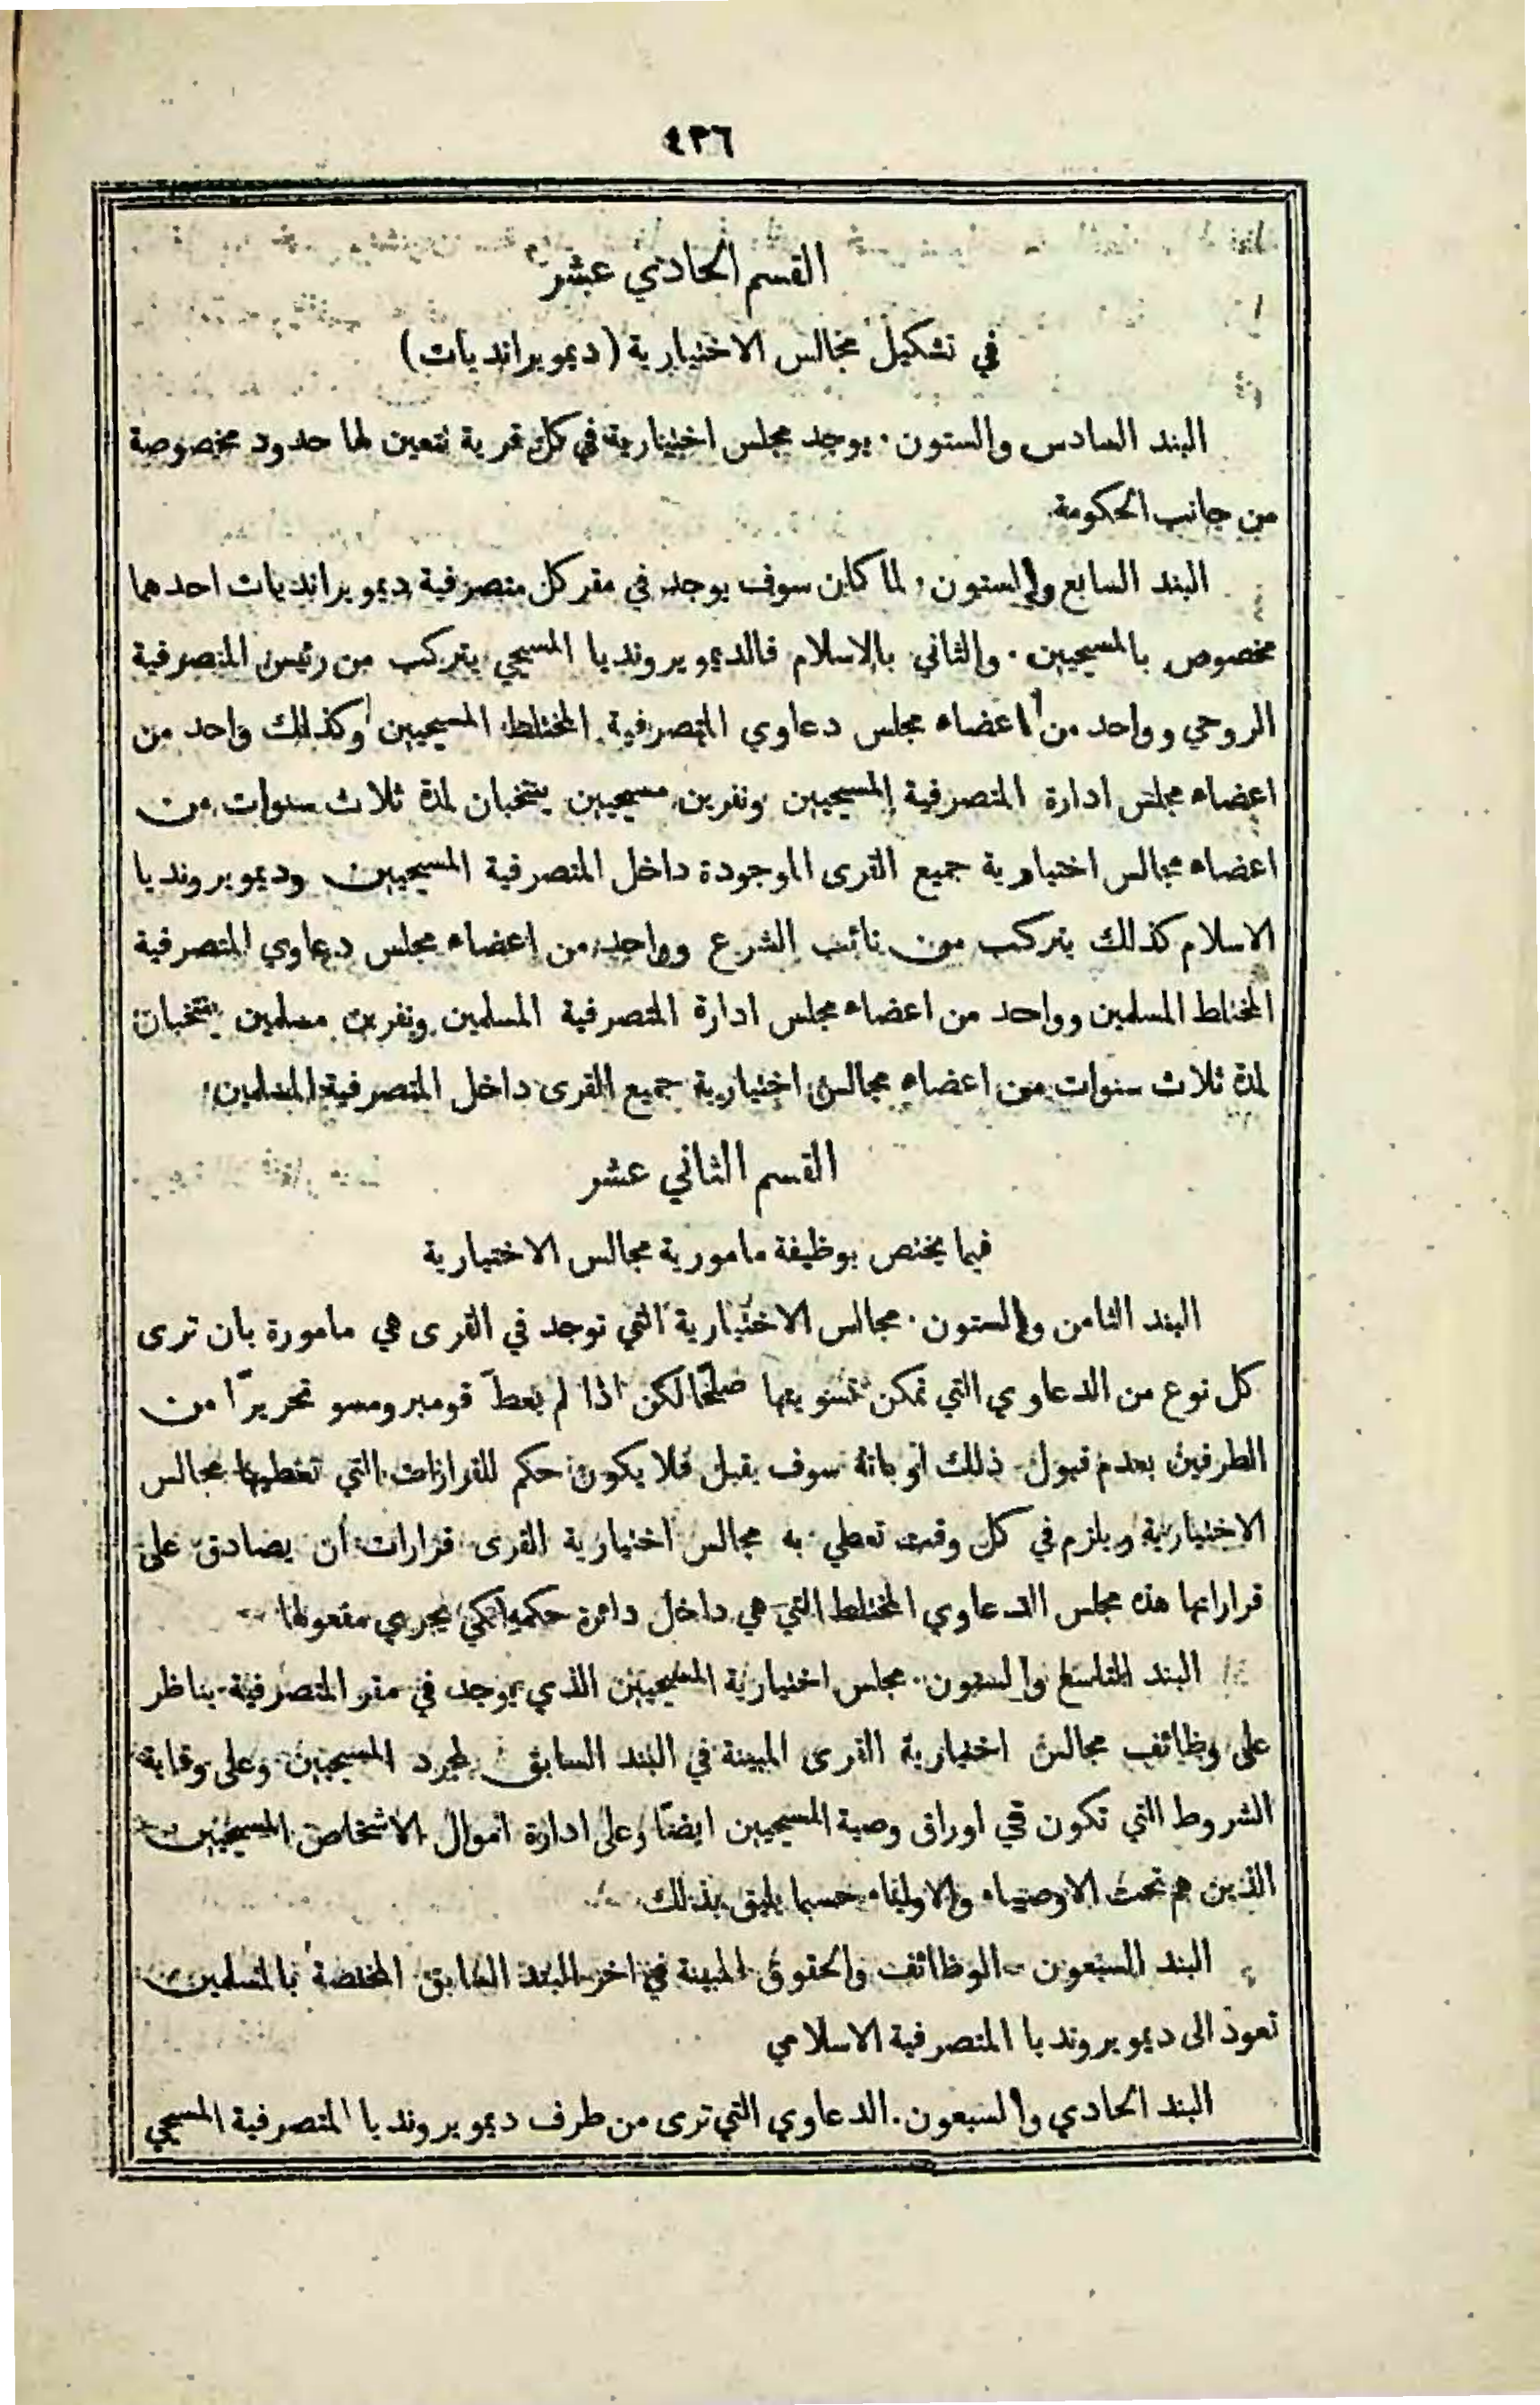 ٤٣٦
القسم الحادي عشر
في تشكيل مجالس الاختيارية (ديموبرانديات)
البند السادس والستون. يوجد مجلس اختيارية في كل قرية نتعين لها حدود مخصوصة
من جانب الحكومة
البند السابع والستون. لما كان سوف يوجد في مقر كل متصرفية ديموبرانديات احدهما
مخصوص بالمسيحيين. والثاني بالاسلام فالديموبرونديا المسيحي يتركب من رئيس المتصرفية
الروحي وواحد من اعضاء مجلس دعاوي المتصرفية المختلط المسيحيين وكذلك واحد من
اعضاء مجلس ادارة المتصرفية المسيحيين ونفرين مسيحيين ينتخبان لمدة ثلاث سنوات من
اعضاء مجالس اختيارية جميع القرى الموجودة داخل المتصرفية المسيحيين وديموبرونديا
الاسلام كذلك يتركب من نائب الشرع وواحد من اعضاء مجلس دعاوي المتصرفية
المختلط المسلمين وواحد من اعضاء مجلس ادارة المتصرفية المسلمين ونفرين مسلمين ينتخبان
لمدة ثلاث سنوات من اعضاء مجالس اختيارية جميع القرى داخل المتصرفية المسلمين
القسم الثاني عشر
فيما يختص بوظيفة مامورية مجالس الاختيارية
البند الثامن والستون. مجالس الاختيارية التي توجد في القرى هي مامورة بان ترى
كل نوع من الدعاوي التي تمكن تسويتها صلحًا لكن اذا لم يعطَ قومبرومسو تحريرًا من
الطرفين بعدم قبول ذلك او بانه سوف يقبل فلا يكون حكم للقرارات التي تعطيها مجالس
الاختيارية ويلزم في كل وقت تعطي به مجالس اختيارية القرى قرارات ان يصادق على
قراراتها هذه مجلس الدعاوي المختلط التي هي داخل دائرة حكمه لكي يجري مفعولها
البند التاسع والستون. مجلس اختيارية المسيحيين الذي يوجد في مقر المتصرفية يناظر
على وظائف مجالس اختيارية القرى المبينة في البند السابق لمجرد المسيحيين وعلى وقاية
الشروط التي تكون في اوراق وصية المسيحيين ايضًا وعلى ادارة اموال الاشخاص المسيحيين
الذين هم تحت الاوصياء والاولياء حسبما يليق بذلك
البند السبعون. الوظائف والحقوق المبينة في اخر البند السابق المختصة بالمسلمين
تعود الى ديموبرونديا المتصرفية الاسلامي
البند الحادي والسبعون. الدعاوي التي ترى من طرف ديموبرونديا المتصرفية المسيحي